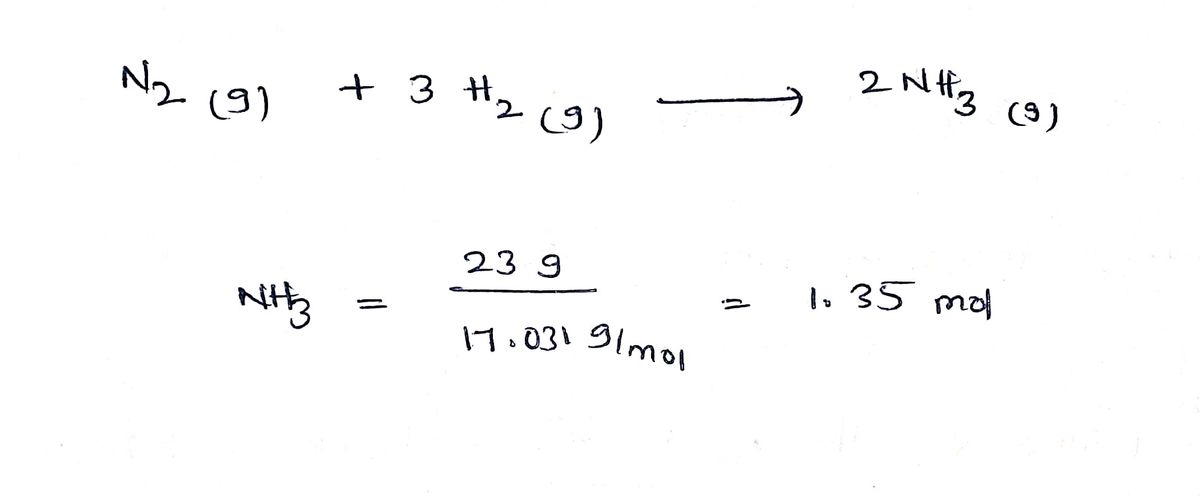 N₂ (g) + 3 H₂ (g) ⟶ 2 NH₃ (g)
NH₃ = 23 g / 17.031 g/mol = 1.35 mol